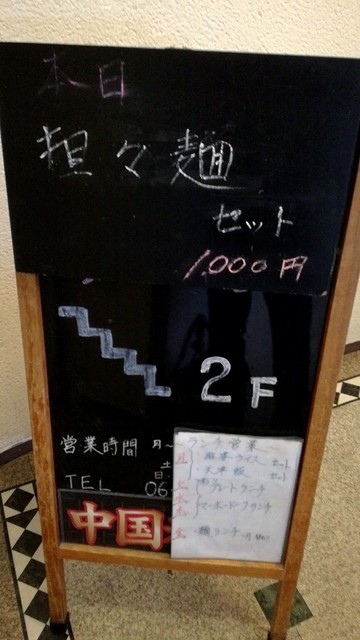 本日
担々麺
セット
1,000円
2F
営業時間 月~
土
日
TEL 06
中国
ランチ営業
月 麻婆ライス セット
天津飯 セット
プレートランチ
マーボードーフランチ
土 麺ランチ